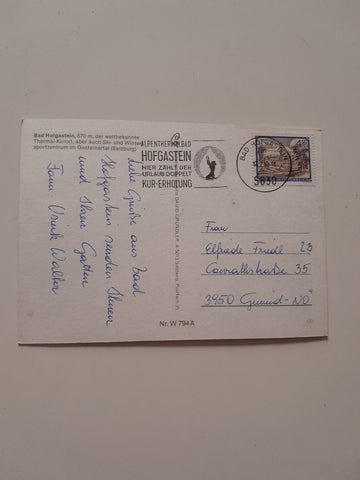 Bad Hofgastein, 870 m, der weltbekannte
Thermal-Kurort, aber auch Ski- und Winter-
sportzentrum im Gasteinertal (Salzburg)
ALPENTHERMALBAD
HOFGASTEIN
HIER ZÄHLT DER
URLAUB DOPPELT
KUR-ERHOLUNG
BAD HOFGASTEIN
5630
liebe Grüße aus Bad
Hofgastein senden Ihnen
und Ihrem Gatten
Fam. Walter
Frau
Elfriede Friedl 23
Conrathstraße 35
3950 Gmünd-NÖ
Nr. W 794 A